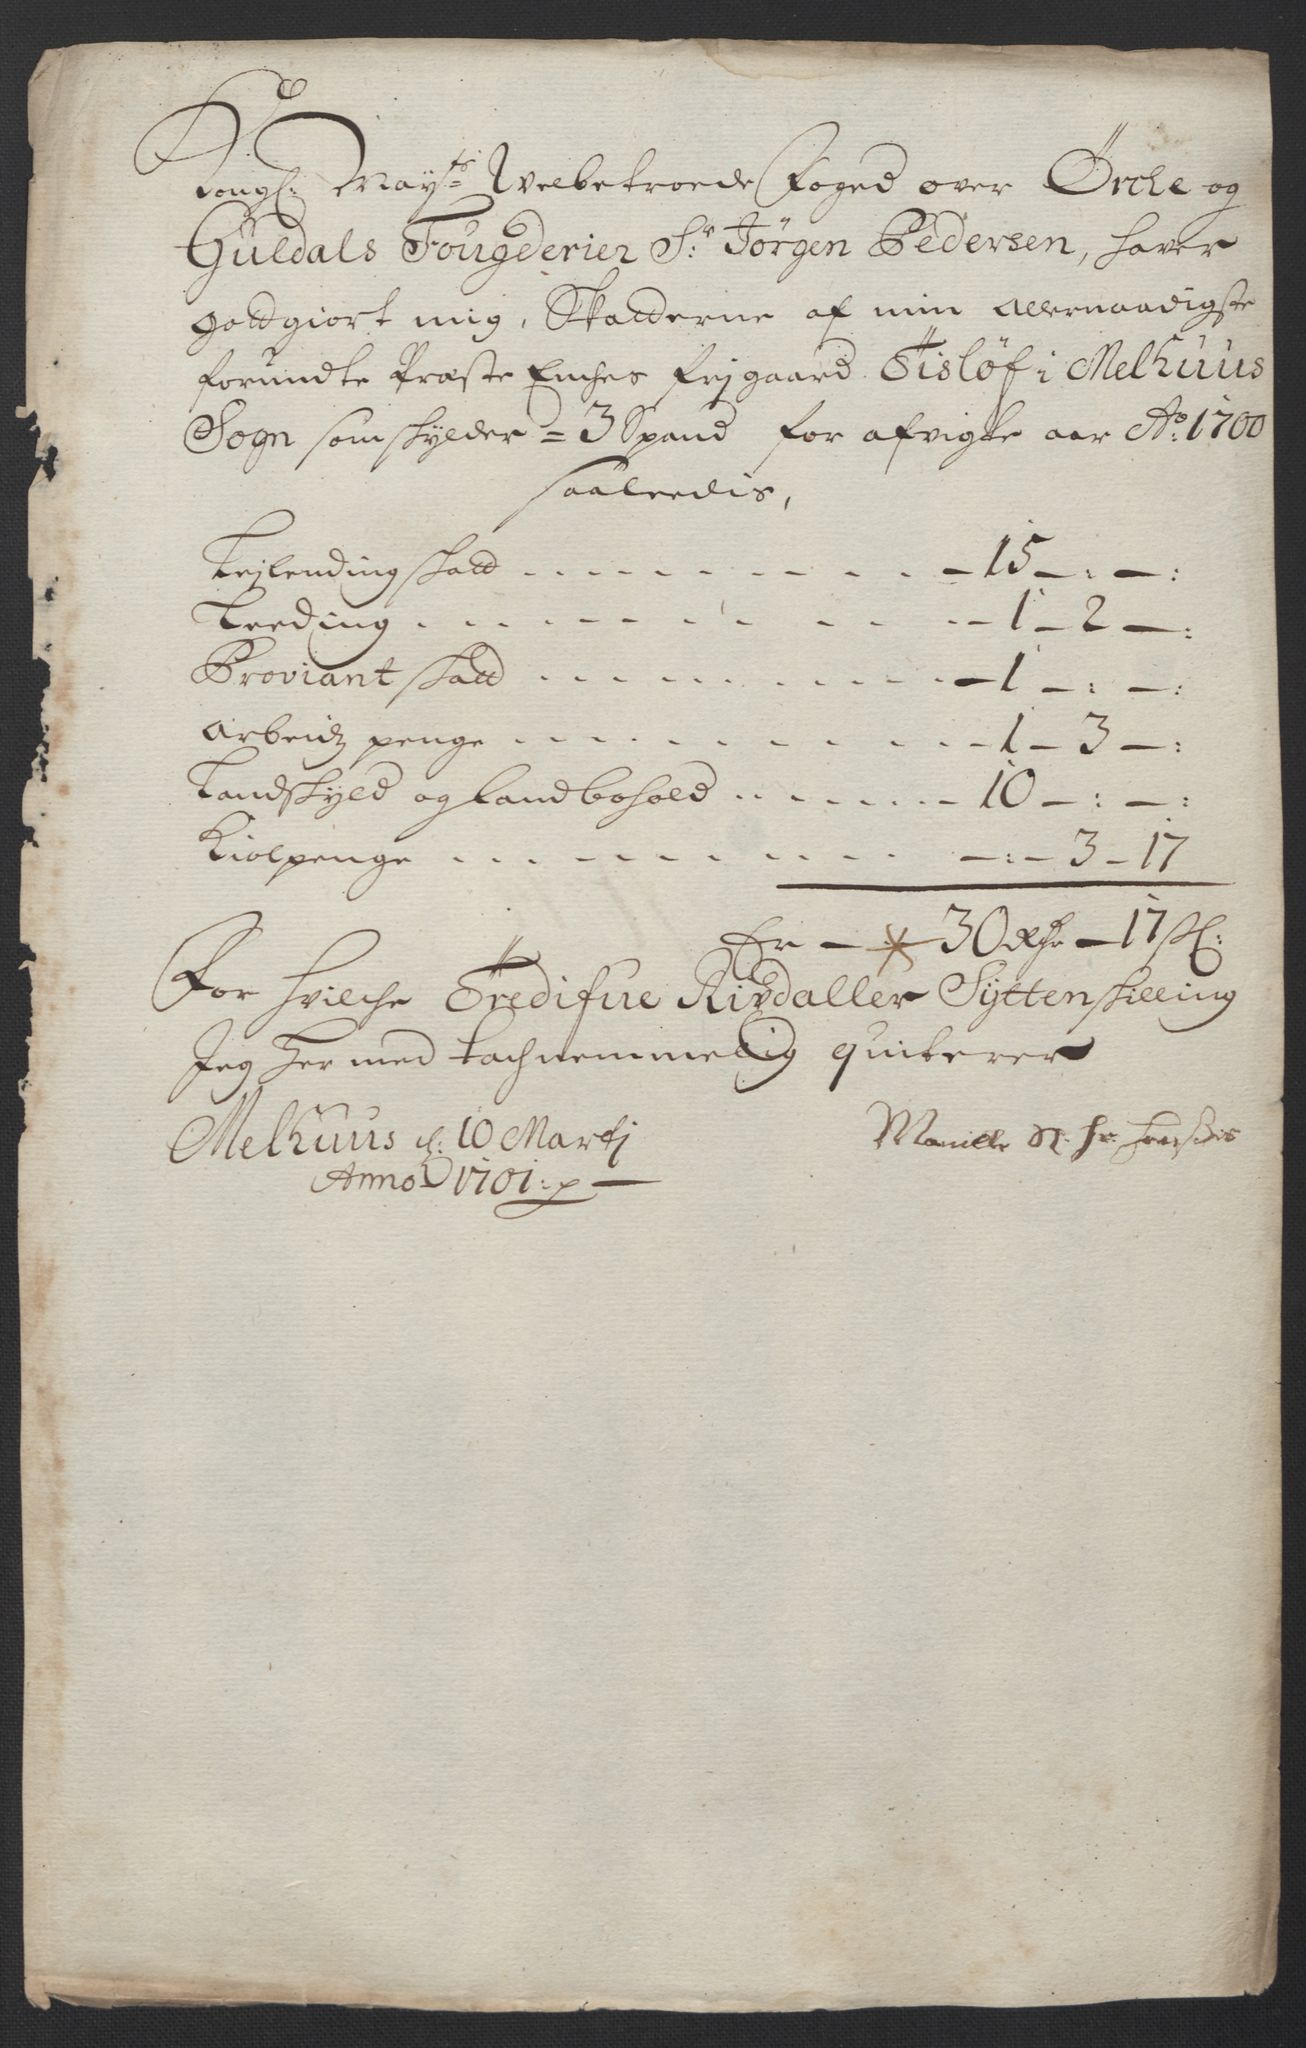 Kongl: Mayts Welbetroede Foged over Örche og
Guldals Fougderier Sr: Jörgen Pedersen, hafver
gottgiort mig, Skatterne af min allernaadigste
forundte Præste Enches frjgaard Tislöf i Melhuus
Sogn som skylder = 3 Spand for afvigte aar Ao: 1700
saaleedis,
Lejlending skatt - 15 - : - :
Leeding - 1 - 2 - :
Proviant skatt - 1 - : - :
Arbeidz penge - 1 - 3 - :
Landskyld og landbohold - 10 - : - :
Kiolpenge - : - 3 - 17
Er - 30 Rdr - 17 sk:
For hvilche Tredifve Rixdaller Sytten skilling
Jeg her med tachnemmelig quiterer
Melhuus d: 10 Martj
Anno 1701: p